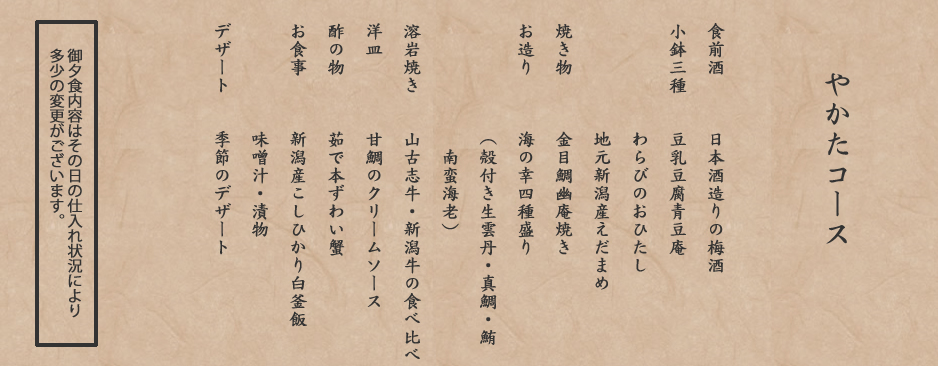 やかたコース
食前酒　日本酒造りの梅酒
小鉢三種　豆乳豆腐青豆庵
わらびのおひたし
地元新潟産えだまめ
焼き物　金目鯛幽庵焼き
お造り　海の幸四種盛り
（殻付き生雲丹・真鯛・鮪
南蛮海老）
溶岩焼き　山古志牛・新潟牛の食べ比べ
洋皿　甘鯛のクリームソース
酢の物　茹で本ずわい蟹
お食事　新潟産こしひかり白釜飯
味噌汁・漬物
デザート　季節のデザート
御夕食内容はその日の仕入れ状況により
多少の変更がございます。